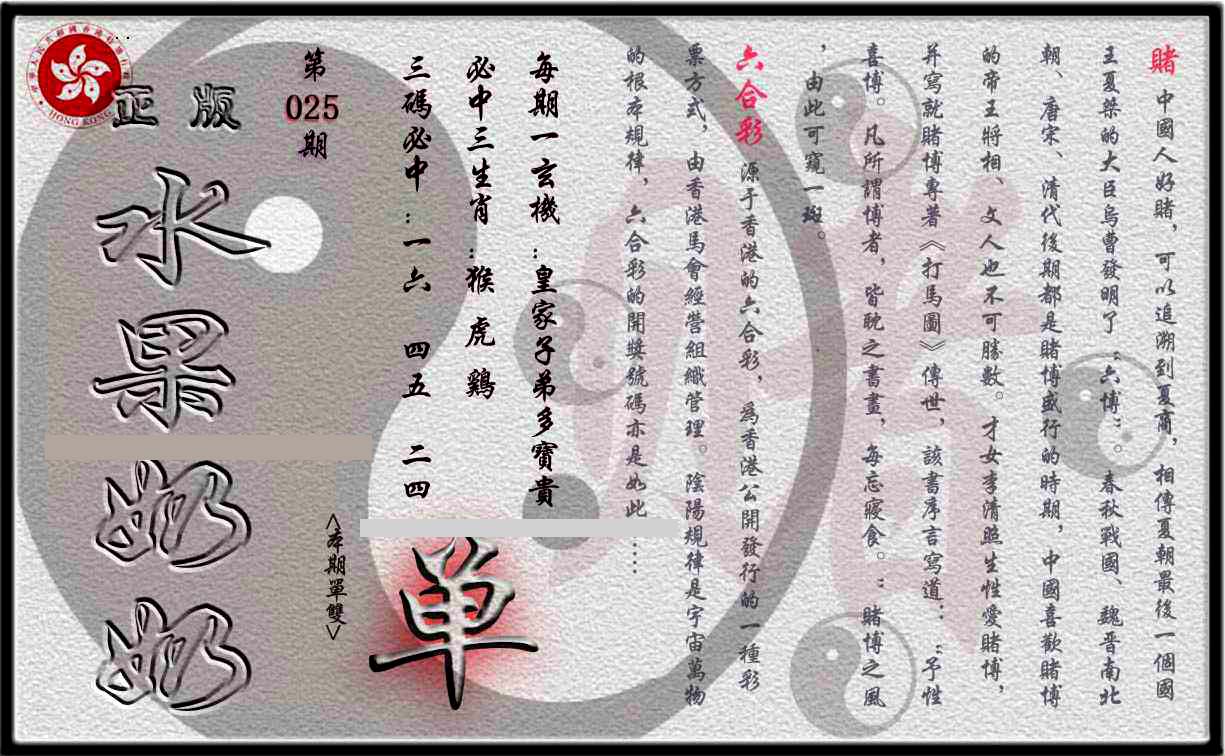 賭 中國人好賭，可以追溯到夏商，相傳夏朝最後一個國
王夏桀的大臣烏曹發明了“六博”。春秋戰國、魏晋南北
朝、唐宋、清代後期都是賭博盛行的時期，中國喜歡賭博
的帝王將相、文人也不可勝數。才女李清照生性愛賭博，
并寫就賭博專著《打馬圖》傳世，該書序言寫道：“予性
喜博。凡所謂博者，皆耽之書畫，每忘寢食。”賭博之風
，由此可窺一斑。
六合彩 源于香港的六合彩，為香港公開發行的一種彩
票方式，由香港馬會經營組織管理。陰陽規律是宇宙萬物
的根本規律，六合彩的開獎號碼亦是如此……
每期一玄機：皇家子弟多寶貴
必中三生肖：猴 虎 鷄
三碼必中：一六 四五 二四
單
<本期單雙>
第
025
期
正版
水果奶奶
HONG KONG